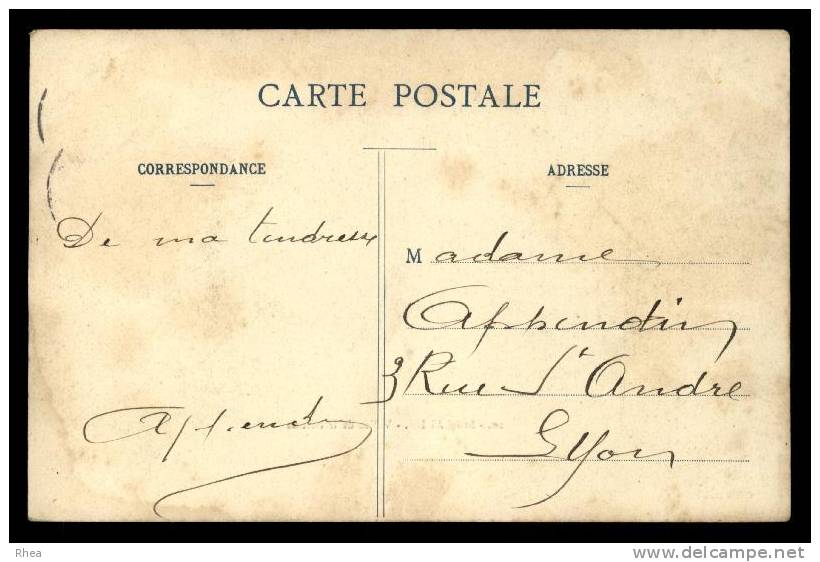 CARTE POSTALE
CORRESPONDANCE
ADRESSE
De ma tendresse
Madame
3 Rue St André
Lyon
Rhea
www.delcampe.net